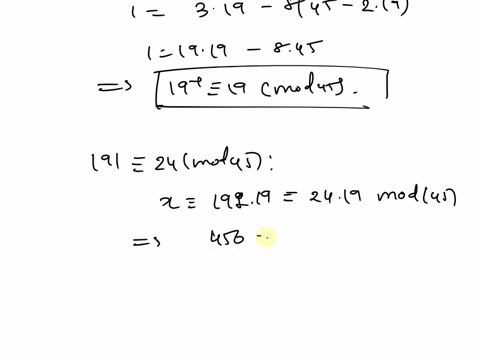 1 = 3.19 - 8(45 - 2.19)
1 = 19.19 - 8.45
=> 19⁻¹ ≡ 19 (mod 45).
191 ≡ 24 (mod 45):
x ≡ 191.19 ≡ 24.19 mod (45)
=> 456 -